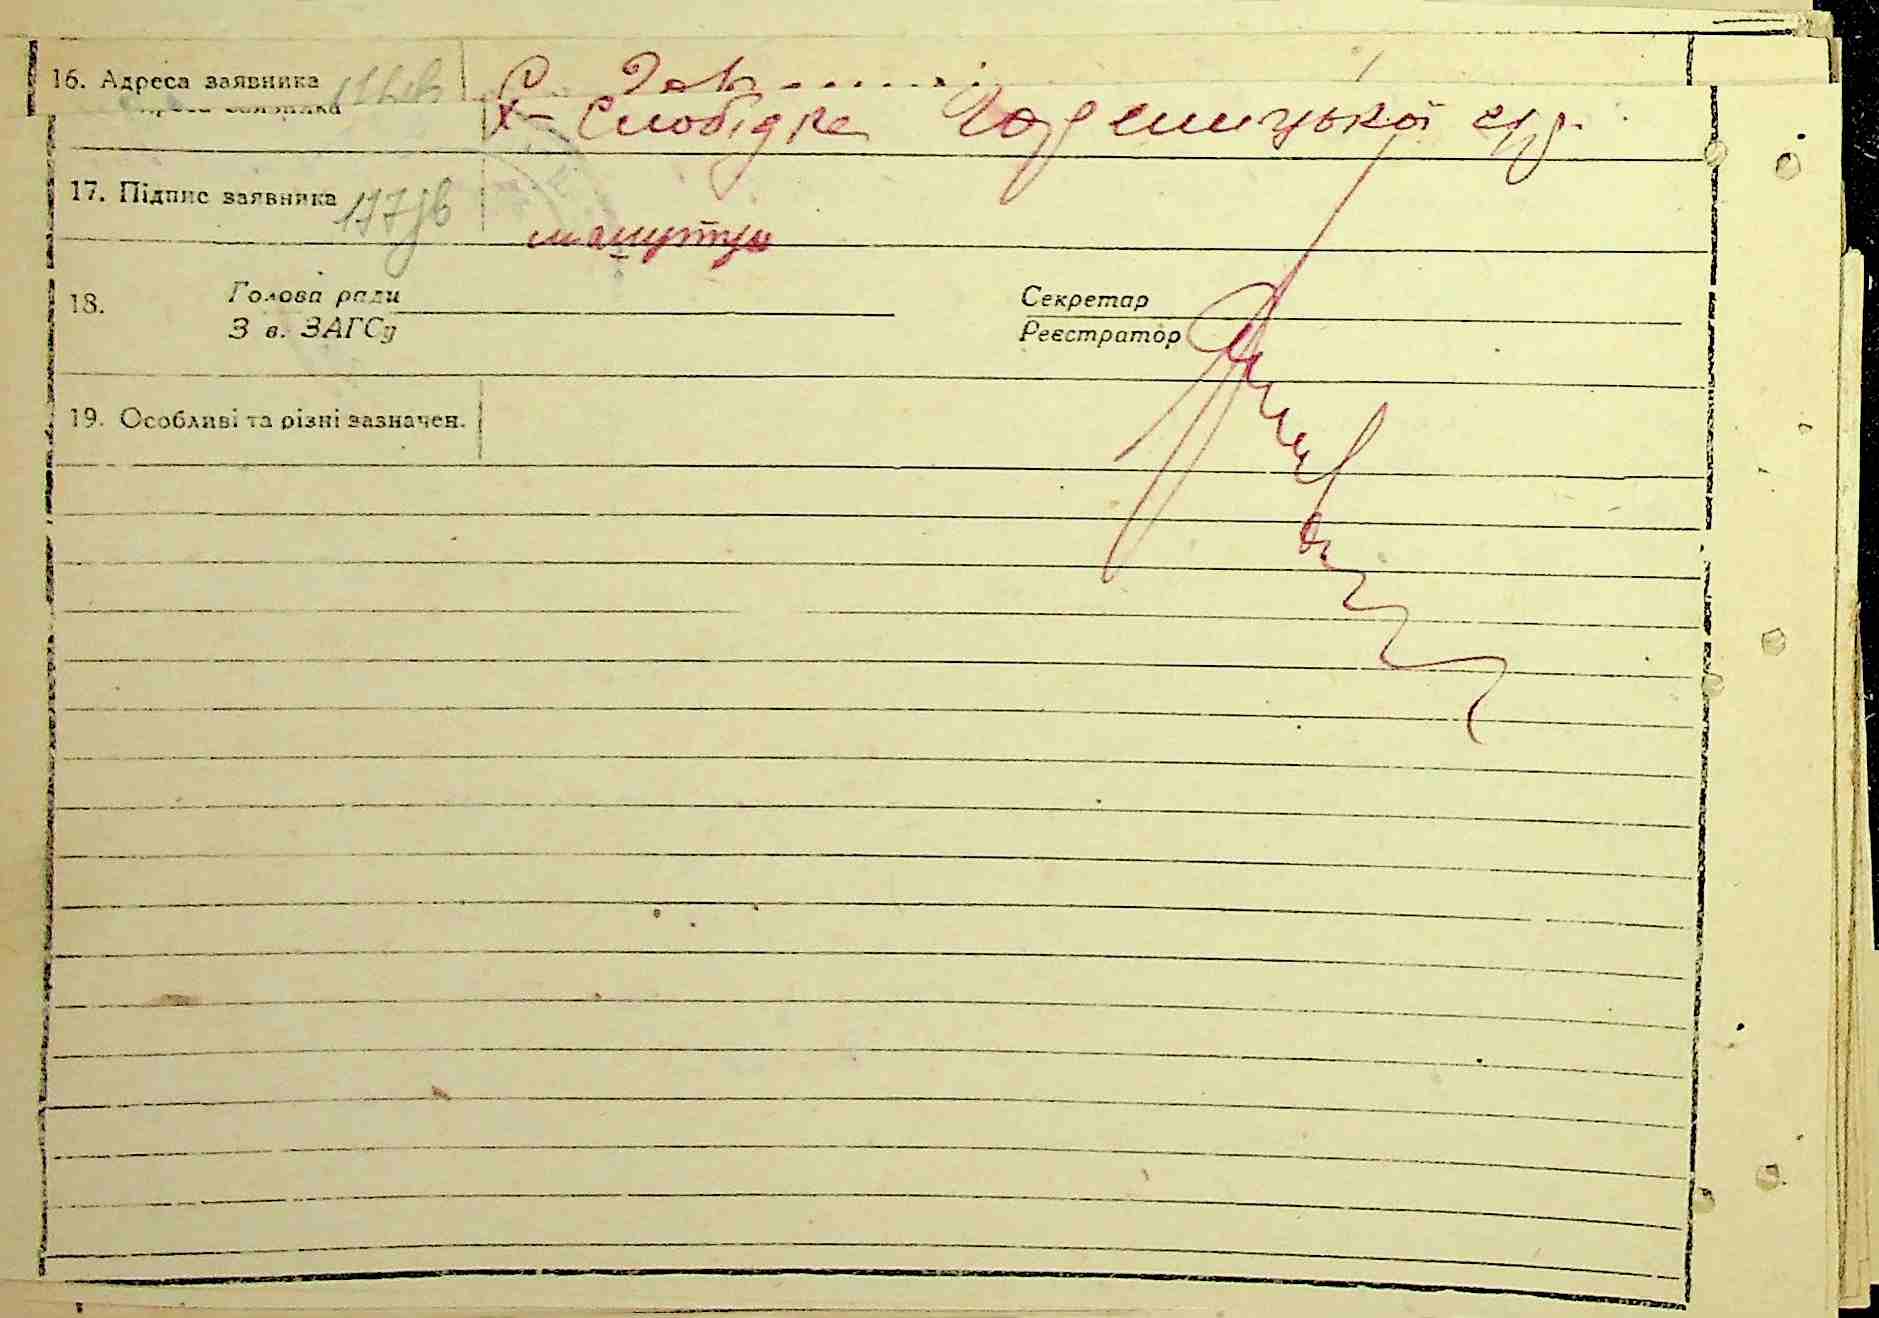 16. Адреса заявника
х-Слобідка Гореницької с/р.
17. Підпис заявника 177зв
18. Голова ради Секретар
З в. ЗАГСу Реєстратор
19. Особливі та різні зазначен.